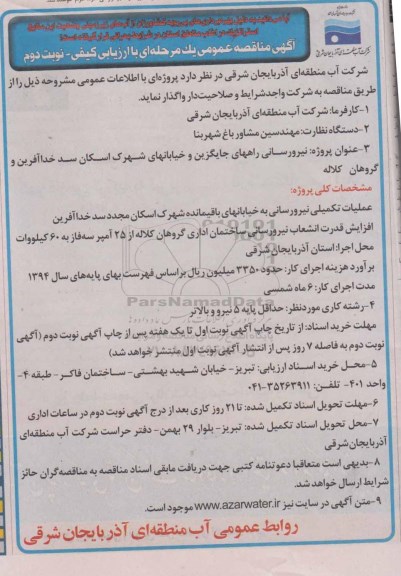 آگهی مناقصه عمومی یک مرحله‌ای با ارزیابی کیفی - نوبت دوم
شرکت آب منطقه‌ای آذربایجان شرقی در نظر دارد پروژه‌ای با اطلاعات عمومی مشروحه ذیل را از
طریق مناقصه به شرکت واجد شرایط و صلاحیت‌دار واگذار نماید.
۱-کارفرما: شرکت آب منطقه‌ای آذربایجان شرقی
۲-دستگاه نظارت: مهندسین مشاور باغ شهر بنا
۳-عنوان پروژه: نیرورسانی راههای جایگزین و خیابانهای شهرک اسکان سد خداآفرین و
گروهان کلاله
مشخصات کلی پروژه:
عملیات تکمیلی نیرورسانی به خیابانهای باقیمانده شهرک اسکان مجدد سد خداآفرین
افزایش قدرت انشعاب نیرورسانی ساختمان اداری گروهان کلاله از ۲۵ آمپر سه‌فاز به ۶۰ کیلووات
محل اجرا: استان آذربایجان شرقی
برآورد هزینه اجرای کار: حدود ۳۳۵۰ میلیون ریال براساس فهرست بهای پایه‌های سال ۱۳۹۴
مدت اجرای کار: ۶ ماه شمسی
ParsNamadData
۴-رشته کاری موردنظر: حداقل پایه ۵ نیرو و بالاتر
مهلت خرید اسناد: از تاریخ چاپ آگهی نوبت اول تا یک هفته پس از چاپ آگهی نوبت دوم (آگهی
نوبت دوم به فاصله ۷ روز پس از انتشار آگهی نوبت اول منتشر خواهد شد)
۵-محل خرید اسناد ارزیابی: تبریز- خیابان شهید بهشتی- ساختمان فاکر- طبقه ۴-
واحد ۴۰۱- تلفن: ۳۵۲۶۳۹۱۱-۰۴۱
۶-مهلت تحویل اسناد تکمیل شده: تا ۲۱ روز کاری بعد از درج آگهی نوبت دوم در ساعات اداری
۷-محل تحویل اسناد تکمیل شده: تبریز- بلوار ۲۹ بهمن- دفتر حراست شرکت آب منطقه‌ای
آذربایجان شرقی
۸-بدیهی است متعاقبا دعوتنامه کتبی جهت دریافت مابقی اسناد مناقصه به مناقصه‌گران حائز
شرایط ارسال خواهد شد.
۹-متن آگهی در سایت نیز www.azarwater.ir موجود است.
روابط عمومی آب منطقه‌ای آذربایجان شرقی